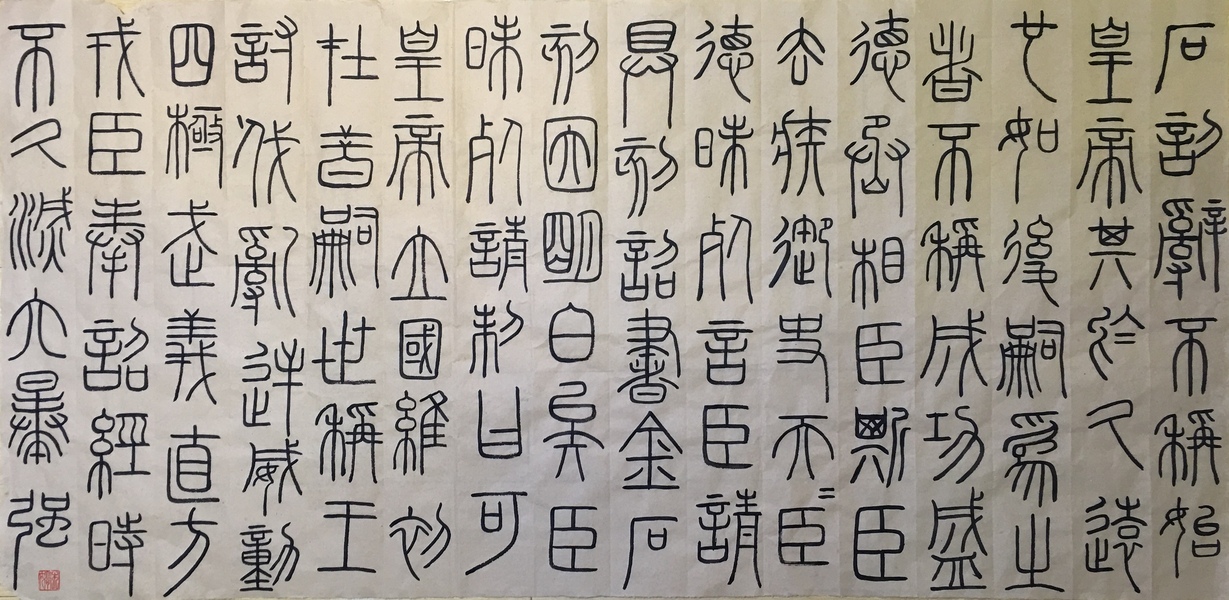 石刻辭不稱始
皇帝其於久遠
也如後嗣爲之
者不稱成功盛
德丞相臣斯臣
去疾御史夫=臣
德昧死言臣請
具刻詔書金石
刻因明白矣臣
昧死請制曰可
皇帝立國維初
在昔嗣世稱王
討伐亂逆威動
四極武義直方
戎臣奉詔經時
不久滅六暴强